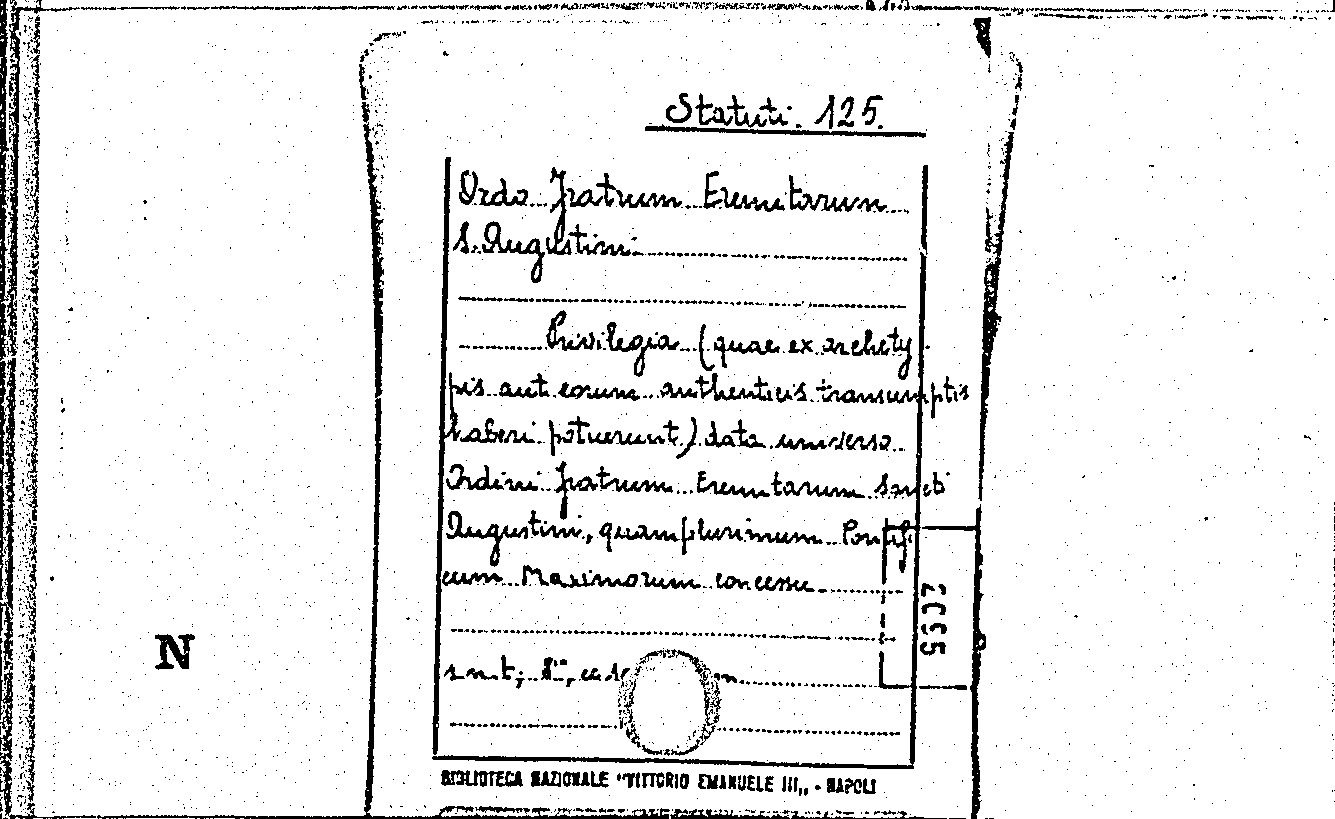 Statuti. 125.
Ordo Fratrum Eremitarum
S. Augustini
Privilegia (quae ex archety
pis aut eorum authenticis transumptis
haberi potuerunt) data universo
Ordini Fratrum Eremitarum Sancti
Augustini, quamplurimum Pontifi
cum Maximorum concessu
s n t; 8°,
2095
N
BIBLIOTECA NAZIONALE "VITTORIO EMANUELE III,, - NAPOLI